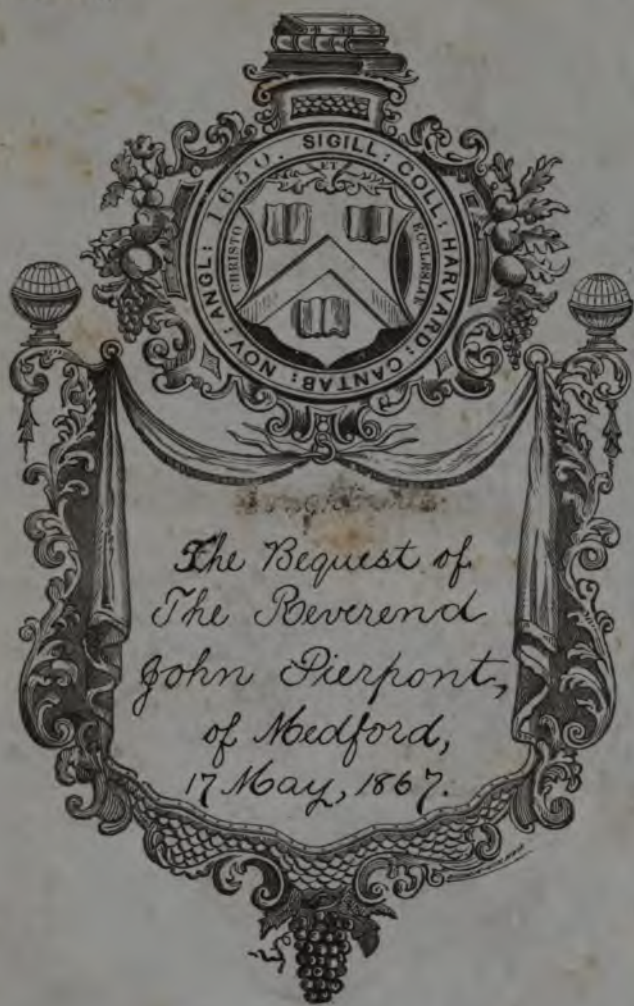 SIGILL: COLL: HARVARD: CANTAB: NOV: ANGL: 1650.
ET
CHRISTO
ECCLESIÆ
The Bequest of
The Reverend
John Pierpont,
of Medford,
17 May, 1867.